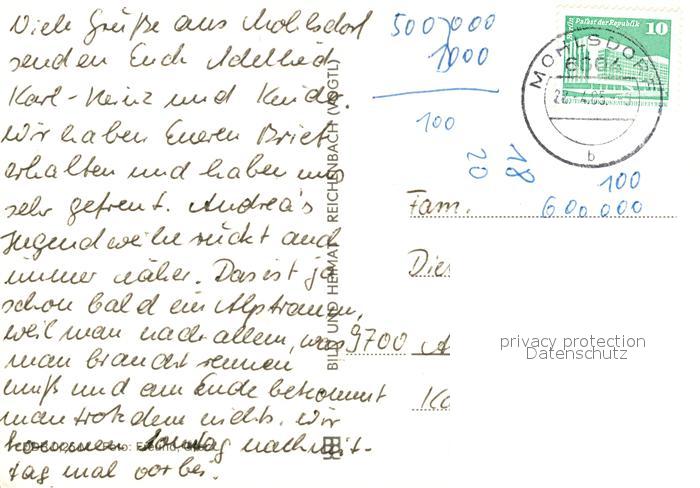 Viele Grüße aus Mohlsdorf
senden Euch Adelheid
Karl-Heinz und Kinder.
Wir haben Eueren Brief
erhalten und haben uns
sehr gefreut. Andrea's
Jugendweihe rückt auch
immer näher. Das ist ja
schon bald ein Alptraum,
weil man nach allem, was
man braucht rennen
muß und am Ende bekommt
man trotzdem nichts. Wir
kommen Sonntag nachmit-
tag mal vorbei.
BILD UND HEIMAT REICHENBACH (VOGTL)
500 000
1000
100
20
18
100
600.000
Palast der Republik 10
MOHLSDORF
6604
b
Fam.
9700 A
privacy protection
Datenschutz